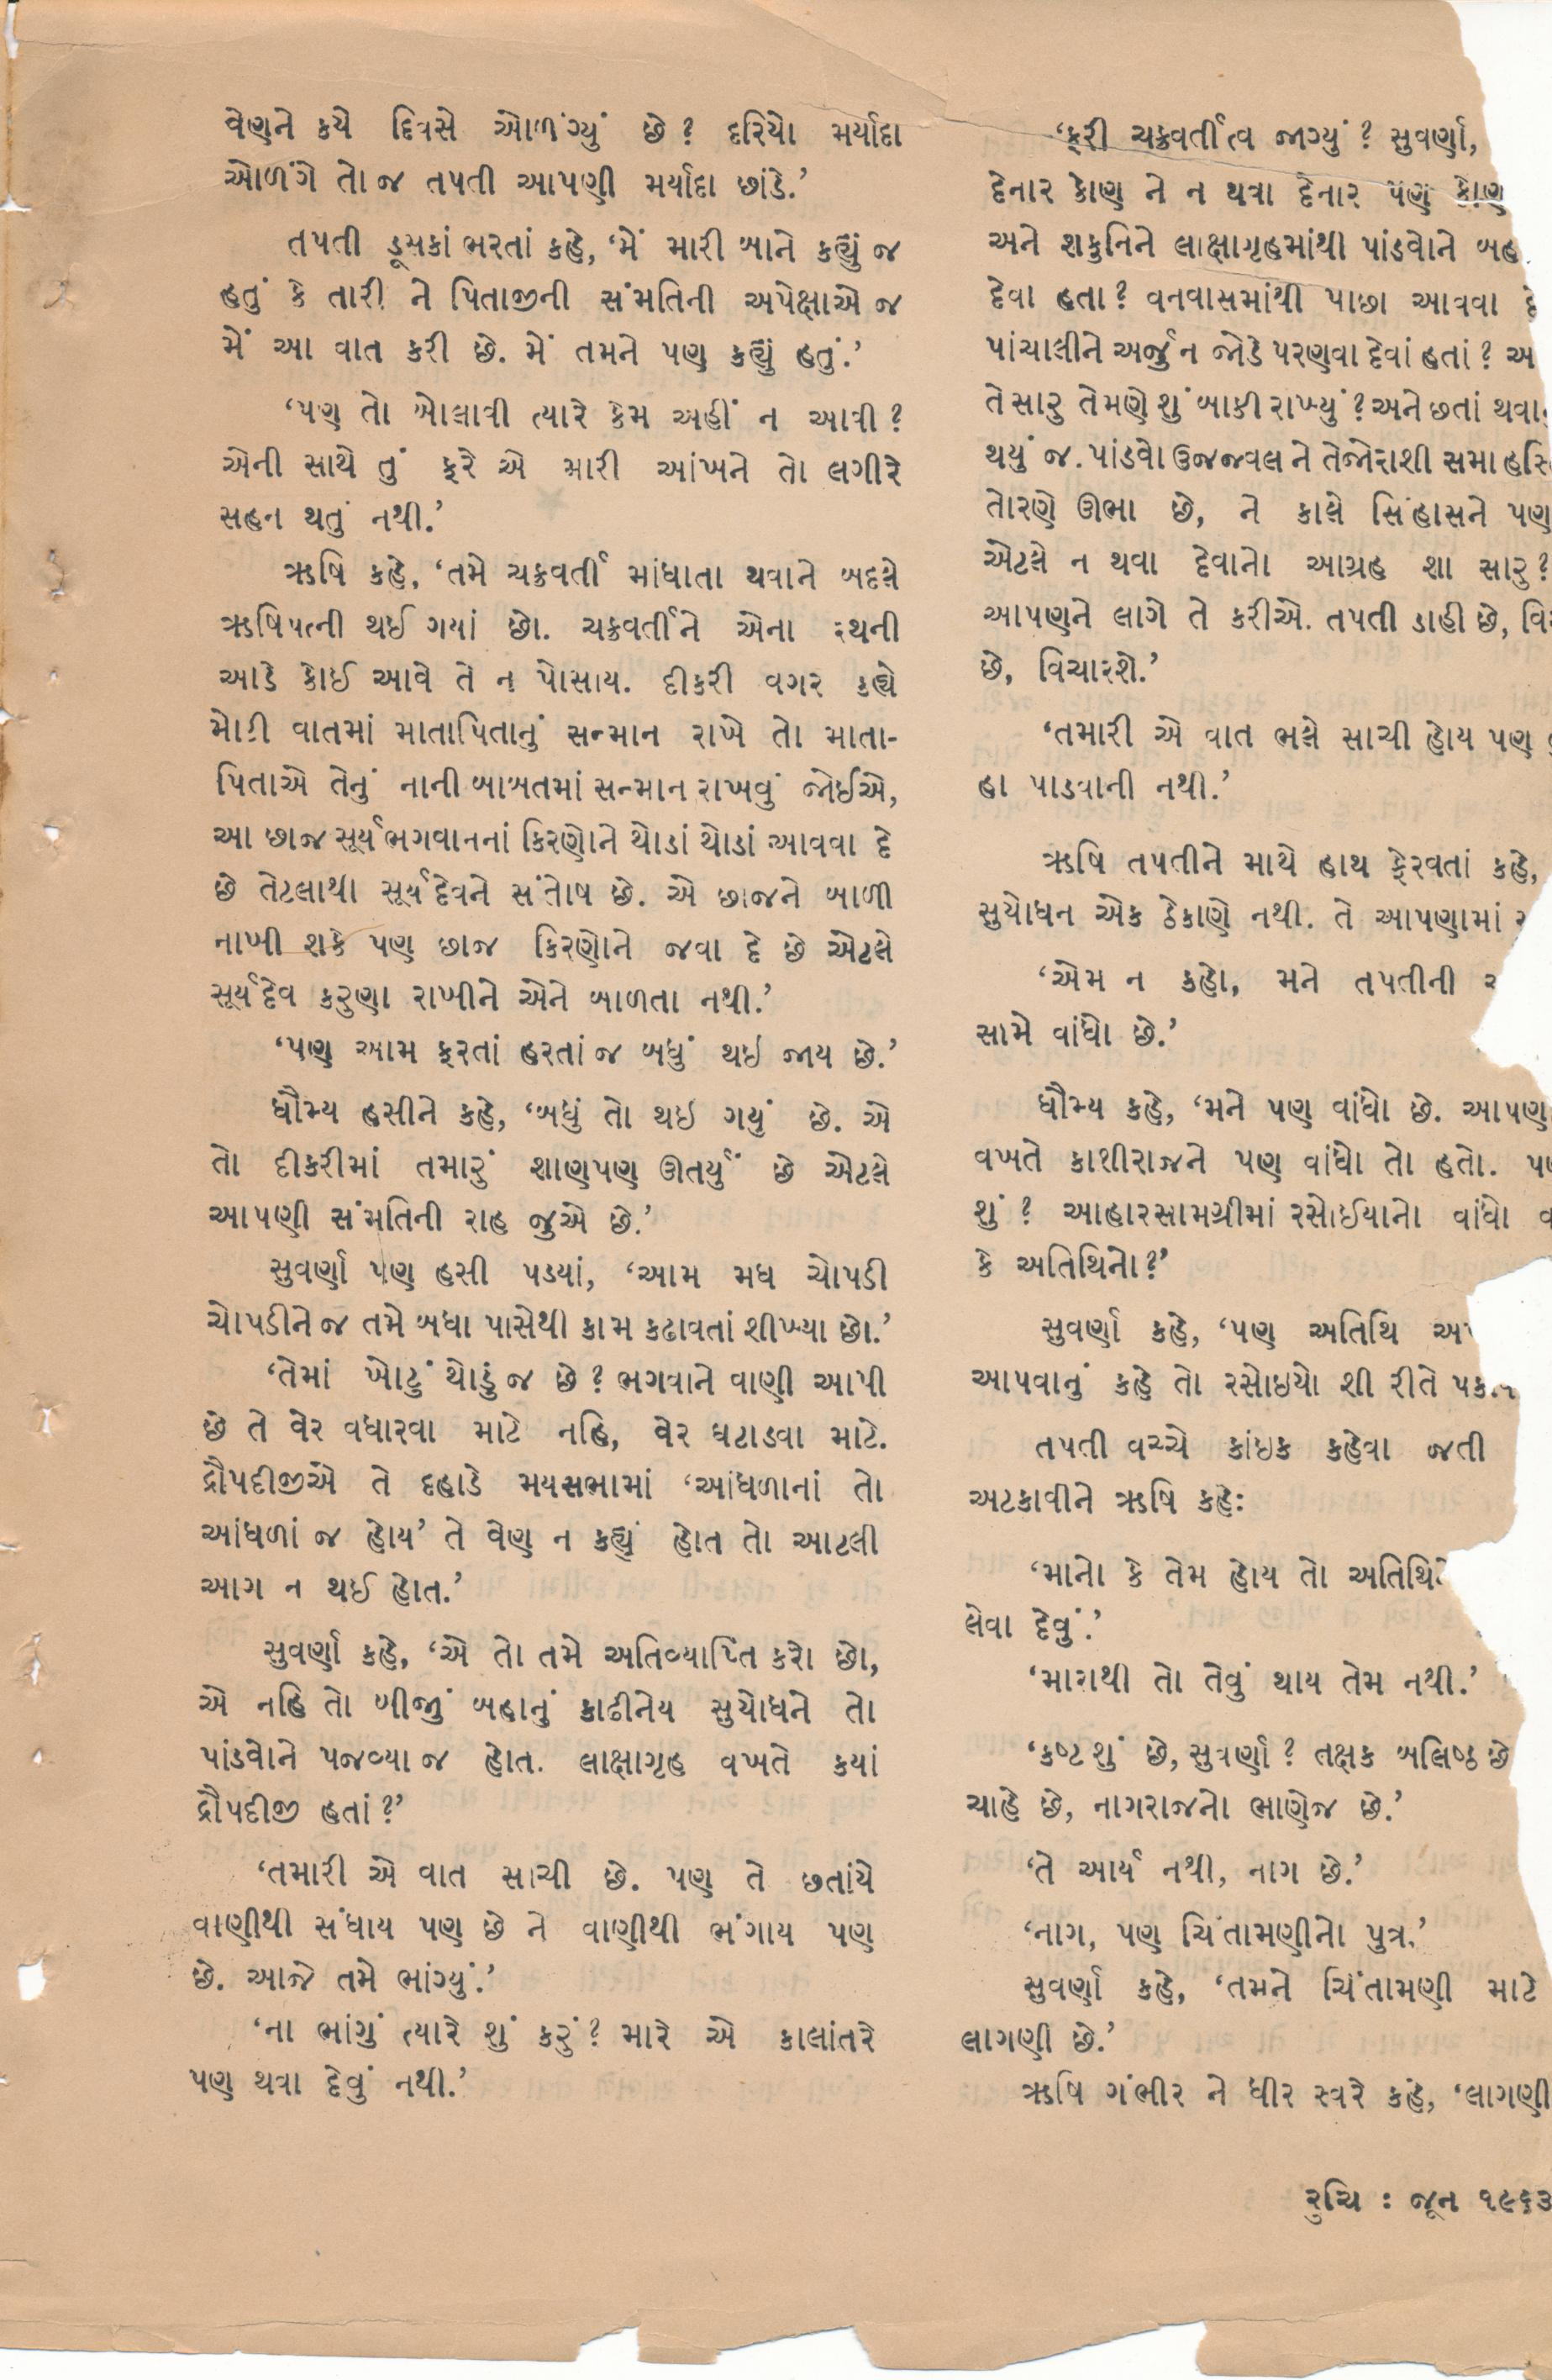 વેણને કયે દિવસે ઓળંગ્યું છે? દરિયો મર્યાદા
ઓળંગે તો જ તપતી આપણી મર્યાદા છાંડે.’
તપતી ડૂસકાં ભરતાં કહે, ‘મેં મારી બાને કહ્યું જ
હતું કે તારી ને પિતાજીની સંમતિની અપેક્ષાએ જ
મેં આ વાત કરી છે. મેં તમને પણ કહ્યું હતું.’
‘પણ તો બોલાવી ત્યારે કેમ અહીં ન આવી?
એની સાથે તું ફરે એ મારી આંખને તો લગીરે
સહન થતું નથી.’
ઋષિ કહે, ‘તમે ચક્રવર્તી માંધાતા થવાને બદલે
ઋષિપત્ની થઈ ગયાં છો. ચક્રવર્તીને એના રથની
આડે કોઈ આવે તે ન પોસાય. દીકરી વગર કહ્યે
મોટી વાતમાં માતાપિતાનું સન્માન રાખે તો માતા-
પિતાએ તેનું નાની બાબતમાં સન્માન રાખવું જોઈએ,
આ છાજ સૂર્યભગવાનનાં કિરણોને થોડાં થોડાં આવવા દે
છે તેટલાથી સૂર્યદેવને સંતોષ છે. એ છાજને બાળી
નાખી શકે પણ છાજ કિરણોને જવા દે છે એટલે
સૂર્યદેવ કરુણા રાખીને એને બાળતા નથી.’
‘પણ આમ ફરતાં હરતાં જ બધું થઇ જાય છે.’
ધૌમ્ય હસીને કહે, ‘બધું તો થઇ ગયું છે. એ
તો દીકરીમાં તમારું શાણપણ ઊતર્યું છે એટલે
આપણી સંમતિની રાહ જુએ છે.’
સુવર્ણા પણ હસી પડયાં, ‘આમ મધ ચોપડી
ચોપડીને જ તમે બધા પાસેથી કામ કઢાવતાં શીખ્યા છો.’
‘તેમાં ખોટું થોડું જ છે? ભગવાને વાણી આપી
છે તે વેર વધારવા માટે નહિ, વેર ઘટાડવા માટે.
દ્રૌપદીજીએ તે દહાડે મયસભામાં ‘આંધળાનાં તો
આંધળાં જ હોય’ તે વેણ ન કહ્યું હોત તો આટલી
આગ ન થઈ હોત.’
સુવર્ણા કહે, ‘એ તો તમે અતિવ્યાપ્તિ કરો છો,
એ નહિ તો બીજું બહાનું કાઢીનેય સુયોધને તો
પાંડવોને પજવ્યા જ હોત. લાક્ષાગૃહ વખતે કયાં
દ્રૌપદીજી હતાં?’
‘તમારી એ વાત સાચી છે. પણ તે છતાંયે
વાણીથી સંધાય પણ છે ને વાણીથી ભંગાય પણ
છે. આજે તમે ભાંગ્યું.’
‘ના ભાંગું ત્યારે શું કરું? મારે એ કાલાંતરે
પણ થવા દેવું નથી.’
‘ફરી ચક્રવર્તીત્વ જાગ્યું? સુવર્ણા,
દેનાર કોણ ને ન થવા દેનાર પણ કોણ
અને શકુનિને લાક્ષાગૃહમાંથી પાંડવોને બહ
દેવા હતા? વનવાસમાંથી પાછા આવવા દે
પાંચાલીને અર્જુન જોડે પરણવા દેવાં હતાં? અ
તે સારુ તેમણે શું બાકી રાખ્યું? અને છતાં થવા
થયું જ. પાંડવો ઉજજવલ ને તેજોરાશી સમા હસ્તિ
તોરણે ઊભા છે, ને કાલે સિંહાસને પણ
એટલે ન થવા દેવાનો આગ્રહ શા સારુ?
આપણને લાગે તે કરીએ. તપતી ડાહી છે, વિ
છે, વિચારશે.’
‘તમારી એ વાત ભલે સાચી હોય પણ
હા પાડવાની નથી.’
ઋષિ તપતીને માથે હાથ ફેરવતાં કહે,
સુયોધન એક ઠેકાણે નથી. તે આપણામાં
‘એમ ન કહો, મને તપતીની
સામે વાંધો છે.’
ધૌમ્ય કહે, ‘મને પણ વાંધો છે. આપણ
વખતે કાશીરાજને પણ વાંધો તો હતો. પણ
શું? આહારસામગ્રીમાં રસોઈયાનો વાંધો વ
કે અતિથિનો?’
સુવર્ણા કહે, ‘પણ અતિથિ
આપવાનું કહે તો રસોઇયો શી રીતે
તપતી વચ્ચે કાંઇક કહેવા જતી
અટકાવીને ઋષિ કહે:
‘માનો કે તેમ હોય તો અતિથિને
લેવા દેવું.’
‘મારાથી તો તેવું થાય તેમ નથી.’
‘કષ્ટ શું છે, સુવર્ણા? તક્ષક બલિષ્ઠ છે
ચાહે છે, નાગરાજનો ભાણેજ છે.’
‘તે આર્ય નથી, નાગ છે.’
‘નાગ, પણ ચિંતામણીનો પુત્ર.’
સુવર્ણા કહે, ‘તમને ચિંતામણી માટે
લાગણી છે.’
ઋષિ ગંભીર ને ધીર સ્વરે કહે, ‘લાગણી
રુચિ : જૂન ૧૯૬૩